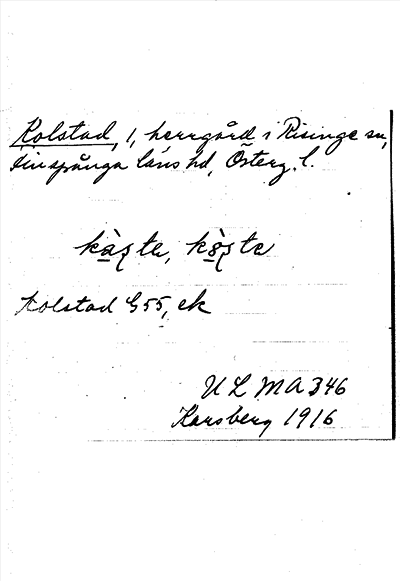 Kolstad, 1, herrgård i Risinge sn,
Finspånga läns hd, Österg. l.
Kolstad G 55, ek
U L M A 346
Karsberg 1916